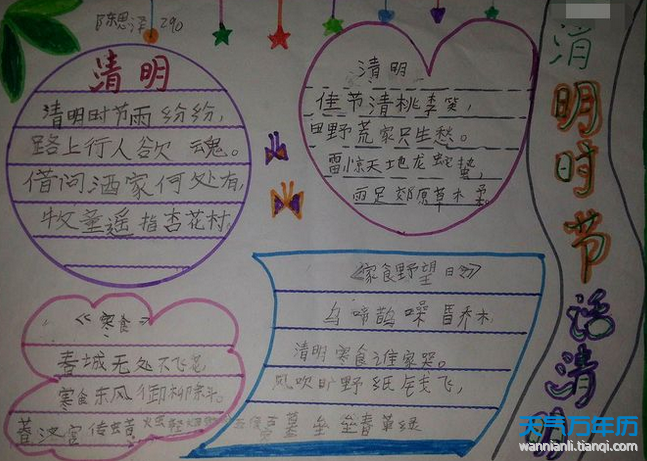 陈思泽 290
清明
清明时节雨纷纷,
路上行人欲 魂。
借问酒家何处有,
牧童遥指杏花村。
清明
佳节清桃李笑,
田野荒冢只生愁。
雷惊天地龙蛇蛰
雨足郊原草木柔
清明时节话清明
寒食野望
乌啼鹊噪昏乔木
清明寒食谁家哭。
风吹旷野纸钱飞,
古墓垒垒春草绿
《寒食》
春城无处不飞花
寒食东风御柳斜。
暮汉宫传蜡
天气万年历
wannianli.tianqi.com